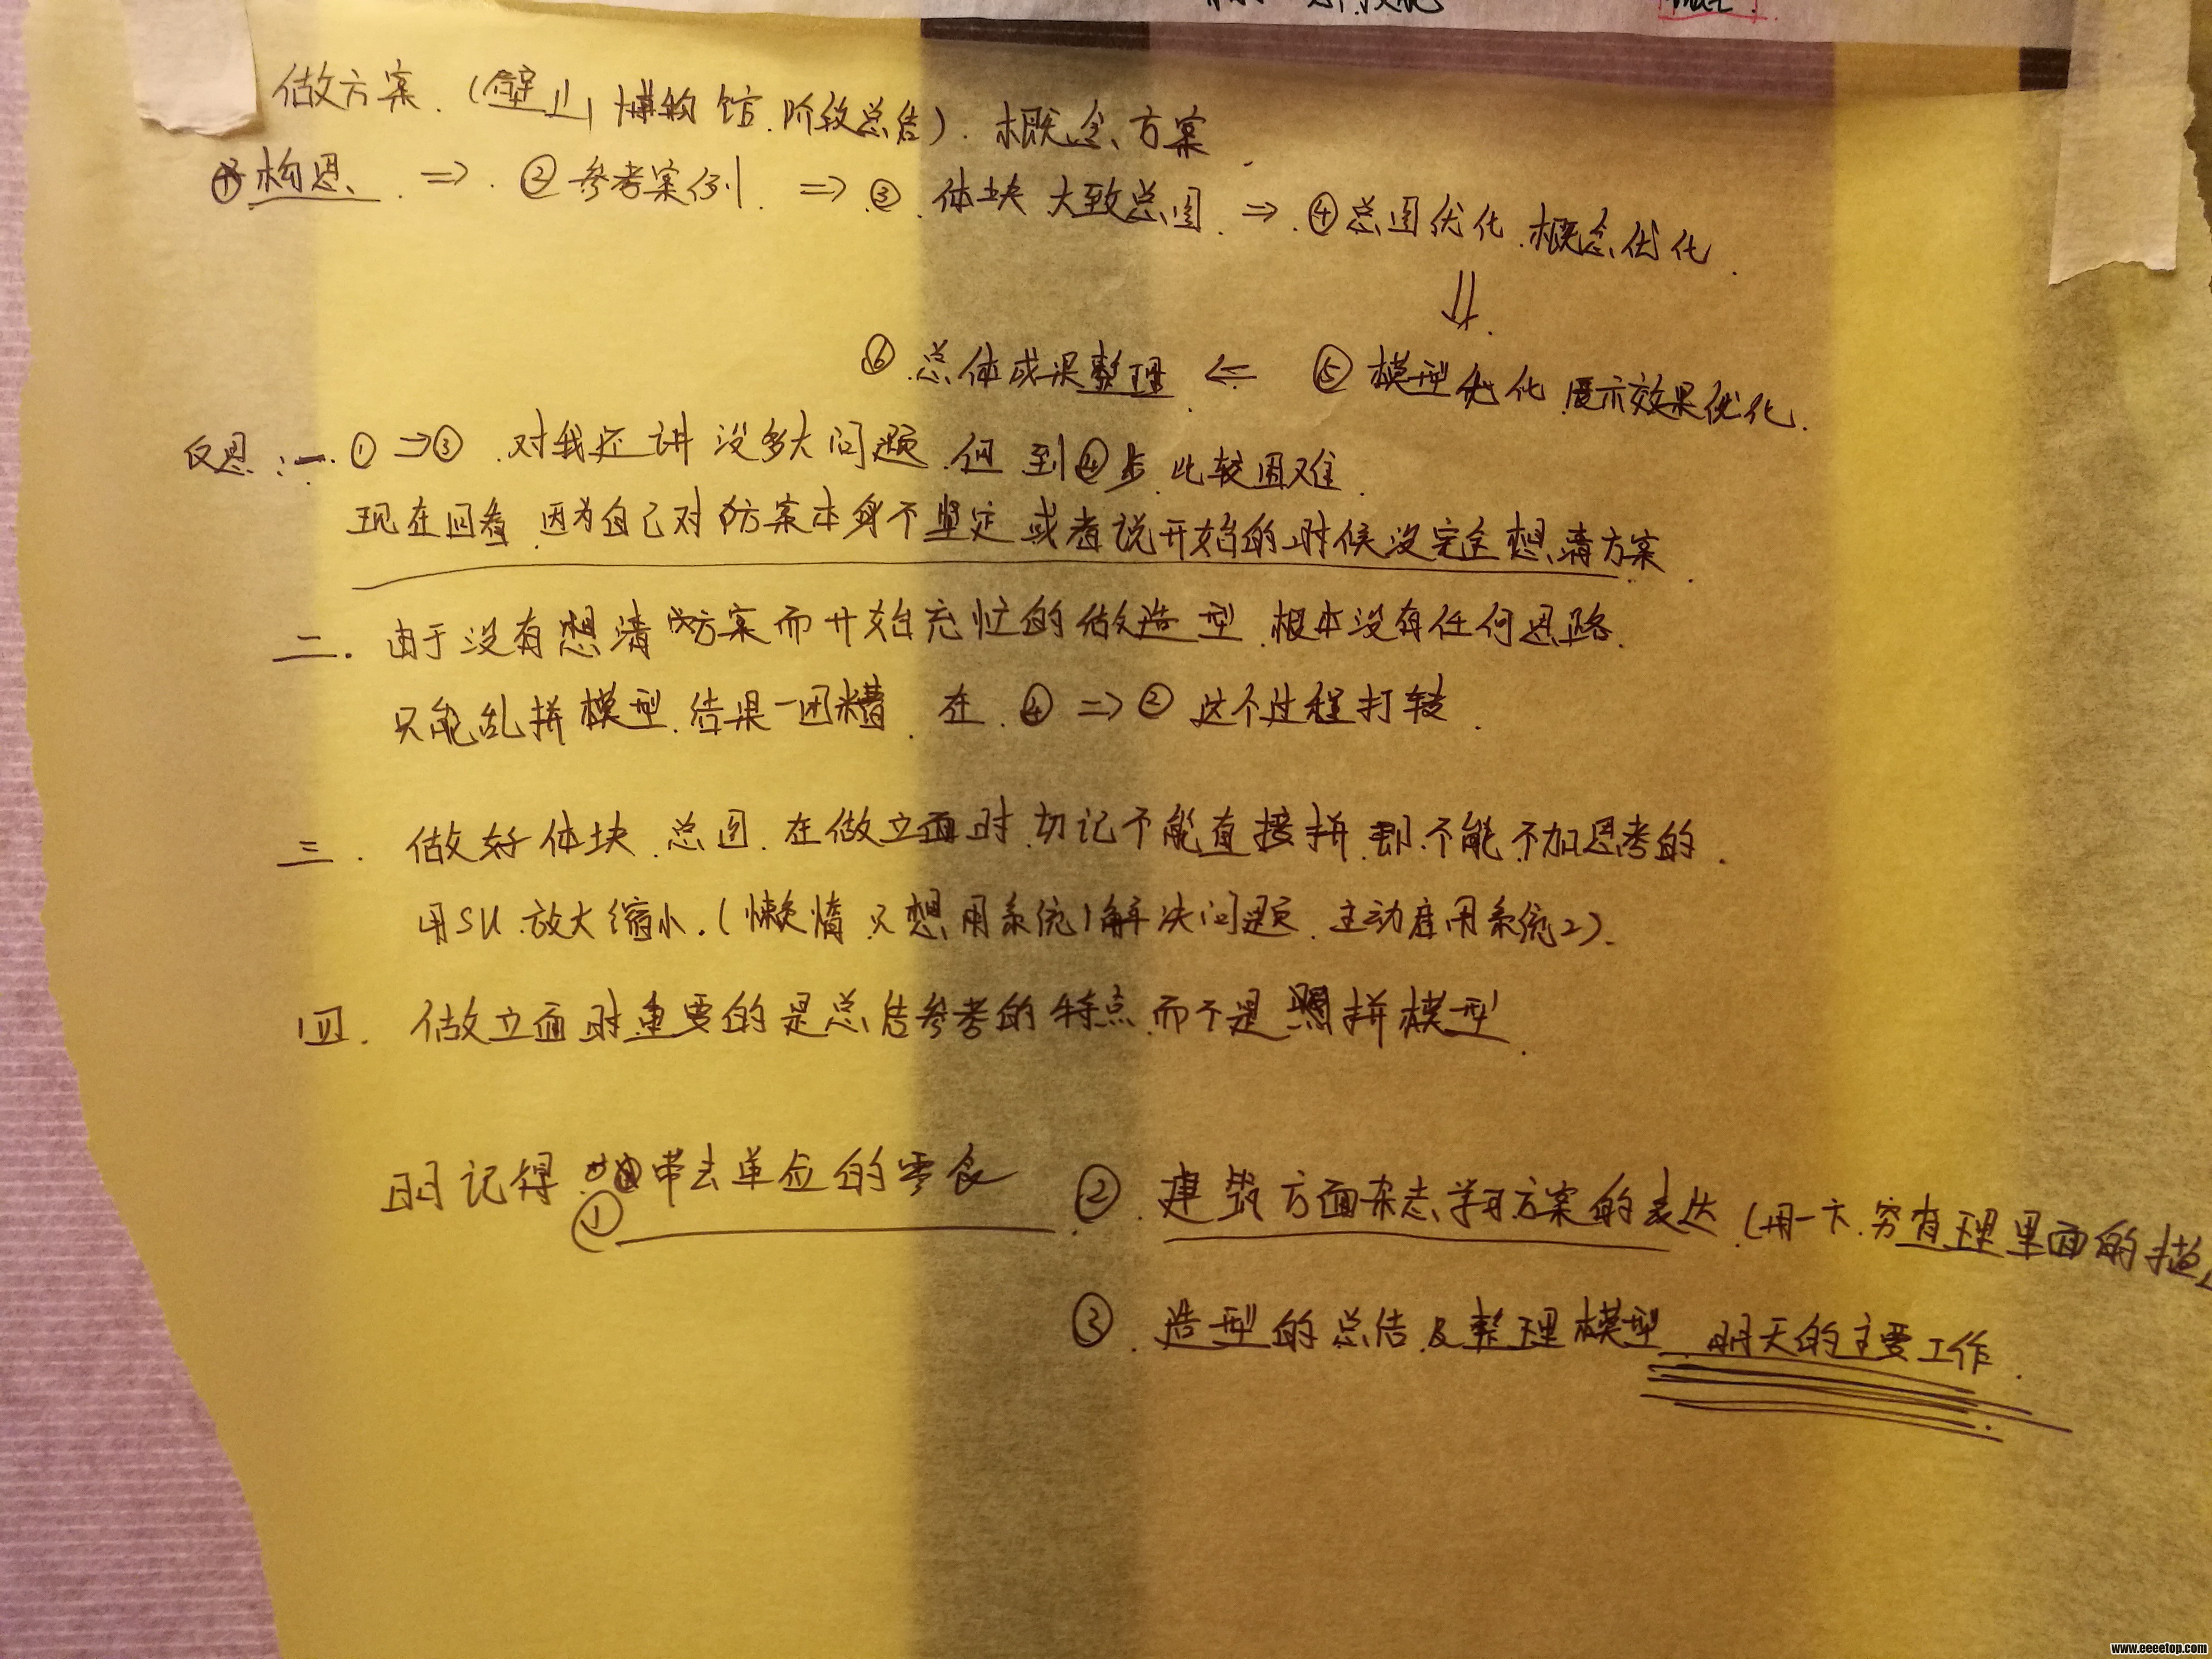 做方案.(璧山博物馆.阶段总结).概念方案.
①构思.⇒.②参考案例.⇒.③.体块 大致总图 ⇒.④总图优化.概念优化.
⇓.
⑥.总体成果整理.⇐ ⑤模型优化.展示效果优化.
反思:一.①⇒③.对我还讲没多大问题.但到④步.比较困难.
现在回看.因为自己对方案本身不坚定 或者说开始的时候没完全想清方案.
二.由于没有想清方案而开始充忙的做造型.根本没有任何思路.
只能乱拼模型.结果一团糟.在.④⇒②这个过程打转.
三.做好体块.总图.在做立面时.切记不能直接拼.即.不能不加思考的.
用SU.放大缩小.(懒惰 只想用系统1解决问题.主动启用系统2).
四.做立面时重要的是总结参考的特点.而不是照拼模型.
明记得 ①带去单位的零食 ②.建筑方面杂志学习方案的表达.(用一下.穷查理里面的
③.造型的总结及整理模型.明天的主要工作.
www.eeeetop.com